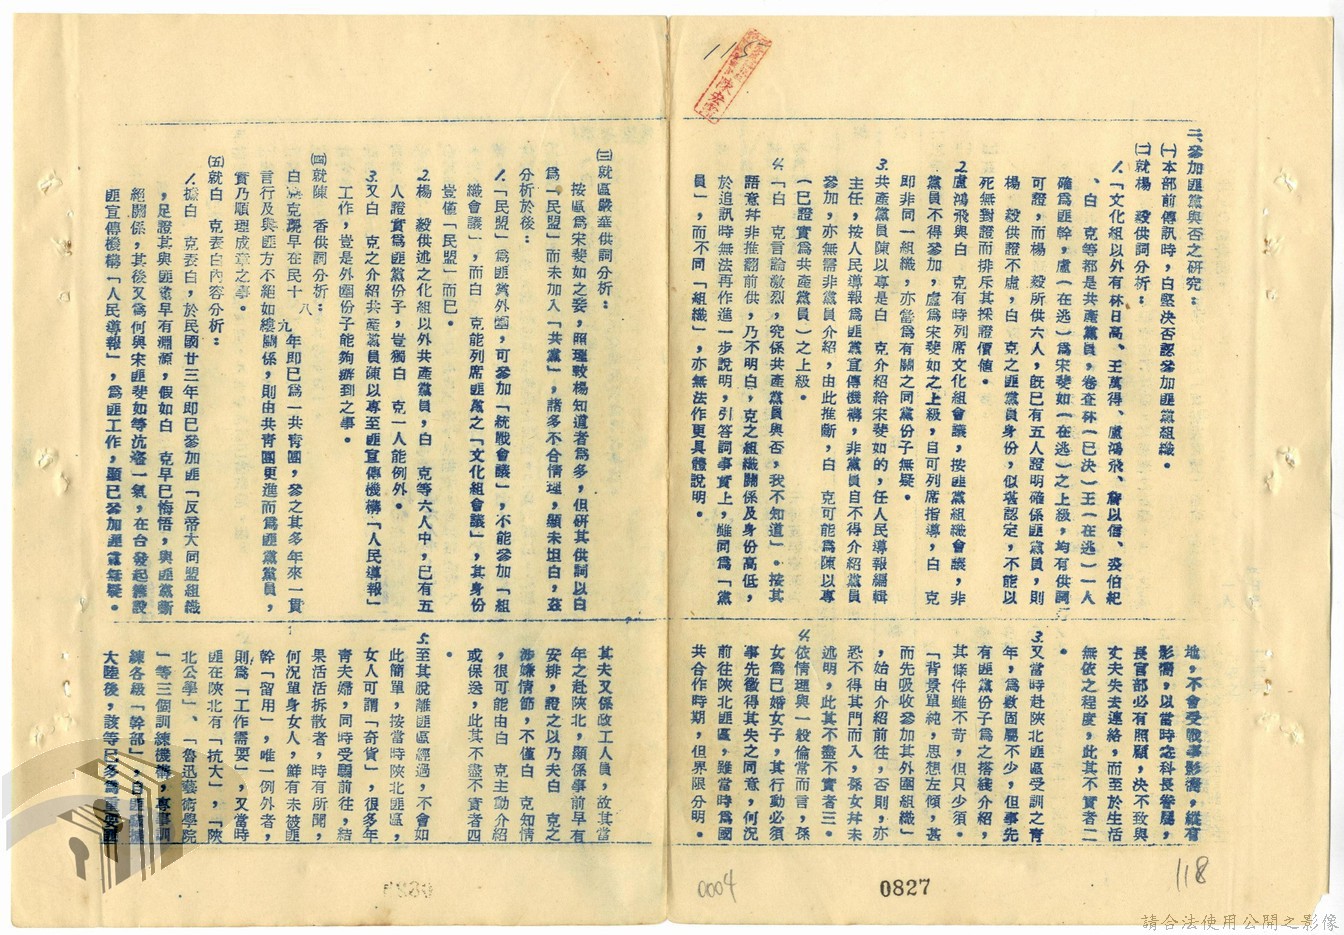 115
二、參加匪黨與否之研究：
㈠本部前傳訊時，白堅決否認參加匪黨組織。
㈡就楊　毅供詞分析：
1.「文化組以外有林日高、王萬得、盧鴻飛、詹以信、裘伯紀
、白　克等都是共產黨員，卷查林（已決）王（在逃）一人
確爲匪幹，盧（在逃）爲宋斐如（在逃）之上級，均有供詞
可證，而楊　毅所供六人，旣已有五人證明確係匪黨員，則
楊　毅供證不虛，白　克之匪黨員身份，似堪認定，不能以
死無對證而排斥其採證價値。
2.盧鴻飛與白　克有時列席文化組會議，按匪黨組織會議，非
黨員不得參加，盧爲宋斐如之上級，自可列席指導，白　克
即非同一組織，亦當爲有關之同黨份子無疑。
3.共產黨員陳以專是白　克介紹給宋斐如的，任人民導報編輯
主任，按人民導報爲匪黨宣傳機構，非黨員自不得介紹黨員
參加，亦無需非黨員介紹，由此推斷，白　克可能爲陳以專
（已證實爲共產黨員）之上級。
4.「白　克言論激烈，究係共產黨員與否，我不知道」。按其
語意幷非推翻前供，乃不明白，克之組織關係及身份高低，
於追訊時無法再作進一步說明，引答詞事實上，雖同爲「黨
員」，而不同「組織」，亦無法作更具體說明。
㈢就區嚴華供詞分析：
按區爲宋斐如之妾，照理較楊知道者爲多，但研其供詞以白
爲「民盟」而未加入「共黨」，諸多不合情理，顯未坦白，玆
分析於後：
1.「民盟」爲匪黨外圍，可參加「統戰會議」，不能參加「組
織會議」，而白　克能列席匪黨之「文化組會議」，其身份
豈僅「民盟」而巳。
2.楊　毅供述之化組以外共產黨員，白　克等六人中，已有五
人證實爲匪黨份子，豈獨白　克一人能例外。
3.又白　克之介紹共產黨員陳以專至匪宣傳機構「人民導報」
工作，豈是外圍份子能夠辦到之事。
㈣就陳　香供詞分析：
白　克既早在民十八九年即已爲一共青團，參之其多年來一貫
言行及與匪方不絕如縷關係，則由共青團更進而爲匪黨黨員，
實乃順理成章之事。
㈤就白　克表白內容分析：
1.據白　克表白，於民國廿三年即巳參加匪「反帝大同盟組織
，足證其與匪黨早有淵源，假如白　克早已悔悟，與匪黨斷
絕關係，其後又爲何與宋匪斐如等沆瀣一氣，在台發起籌設
匪宣傳機構「人民導報」，爲匪工作，顯已參加匪黨無疑。
地，不會受戰事影響，縱有
影響，以當時忞科長眷屬，
長官部必有照顧，決不致與
丈夫失去連絡，而至於生活
無依之程度，此其不實者二
。
3.又當時赴陝北匪區受訓之靑
年，爲數固屬不少，但事先
有匪黨份子爲之搭綫介紹，
其條件雖不苛，但只少須。
「背景單純，思想左傾，甚
而先吸收參加其外圍組織」
，始由介紹前往，否則，亦
恐不得其門而入，孫女幷未
述明，此其不盡不實者三。
4.依情理與一般倫常而言，孫
女爲已婚女子，其行動必須
事先徵得其失之同意，何況
前往陝北匪區，雖當時爲國
共合作時期，但界限分明。
其夫又係政工人員，故其當
年之赴陝北，顯係事前早有
安排，證之以乃夫白　克之
涉嫌情節，不僅白　克知情
，很可能由白　克主動介紹
或保送，此其不盡不實者四
。
5.至其脫離匪區經過，不會如
此簡單，按當時陝北匪區，
女人可謂「奇貨」，很多年
青夫婦，同時受騙前往，結
果活活拆散者，時有所聞，
何況單身女人，鮮有未被匪
幹「留用」，唯一例外者，
則爲「工作需要」，又當時
匪在陝北有「抗大」，「陝
北公學」、「魯迅藝術學院
」等三個訓練機構，專事訓
練各級「幹部」，自匪竊據
大陸後，該等已多爲重要匪
0827
0004
118
請合法使用公開之影像